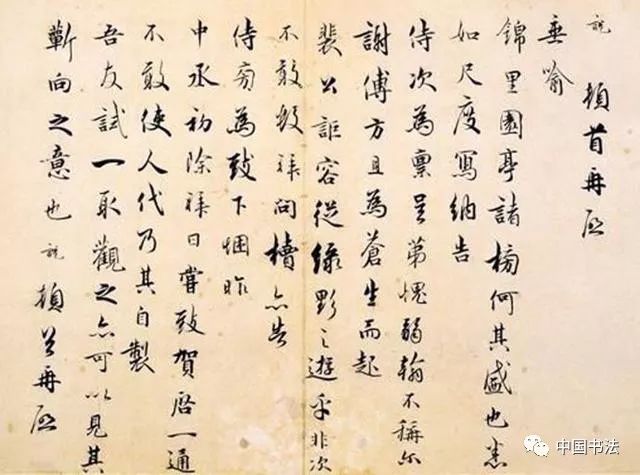 說頓首再啓
垂喻
錦里園亭諸榜何其盛也悉
如尺度寫納告
侍次為稟呈第愧弱翰不稱尔
謝傅方且為蒼生而起
裴公詎容從綠野之遊乎非次
不敢數拜問櫝亦告
侍旁為致下悃昨
中丞初除拜日嘗致賀啓一通
不敢使人代乃其自製
吾友試一取觀之亦可以見其
蘄向之意也說頓首再啓
中国书法